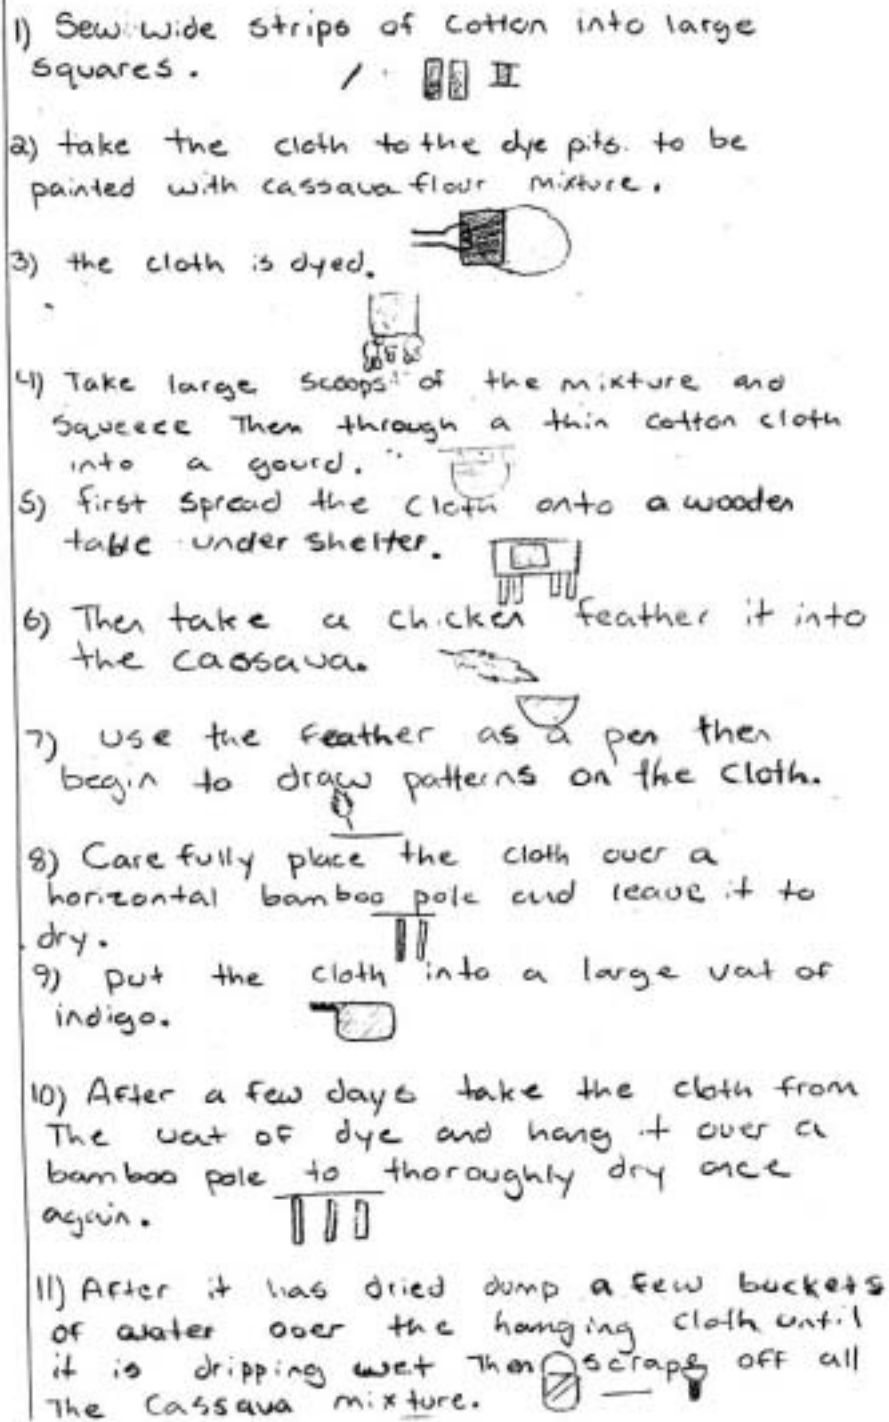 1) Sew wide strips of cotton into large
squares.
2) take the cloth to the dye pits. to be
painted with cassava flour mixture.
3) the cloth is dyed.
4) Take large scoops of the mixture and
squeeze Them through a thin cotton cloth
into a gourd.
5) first spread the cloth onto a wooden
table under shelter.
6) Then take a chicken feather it into
the cassava.
7) use the feather as a pen then
begin to draw patterns on the cloth.
8) Carefully place the cloth over a
horizontal bamboo pole and leave it to
dry.
9) put the cloth into a large vat of
indigo.
10) After a few days take the cloth from
The vat of dye and hang it over a
bamboo pole to thoroughly dry once
again.
11) After it has dried dump a few buckets
of water over the hanging cloth until
it is dripping wet Then scrape off all
The cassava mixture.